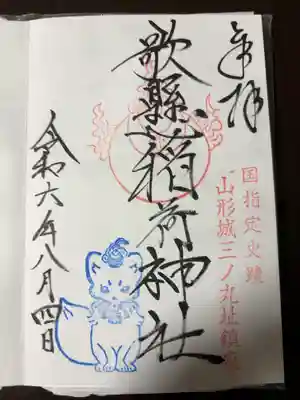 奉拝
国指定史跡
山形城三ノ丸址鎮座
歌懸稲荷神社
令和六年八月四日